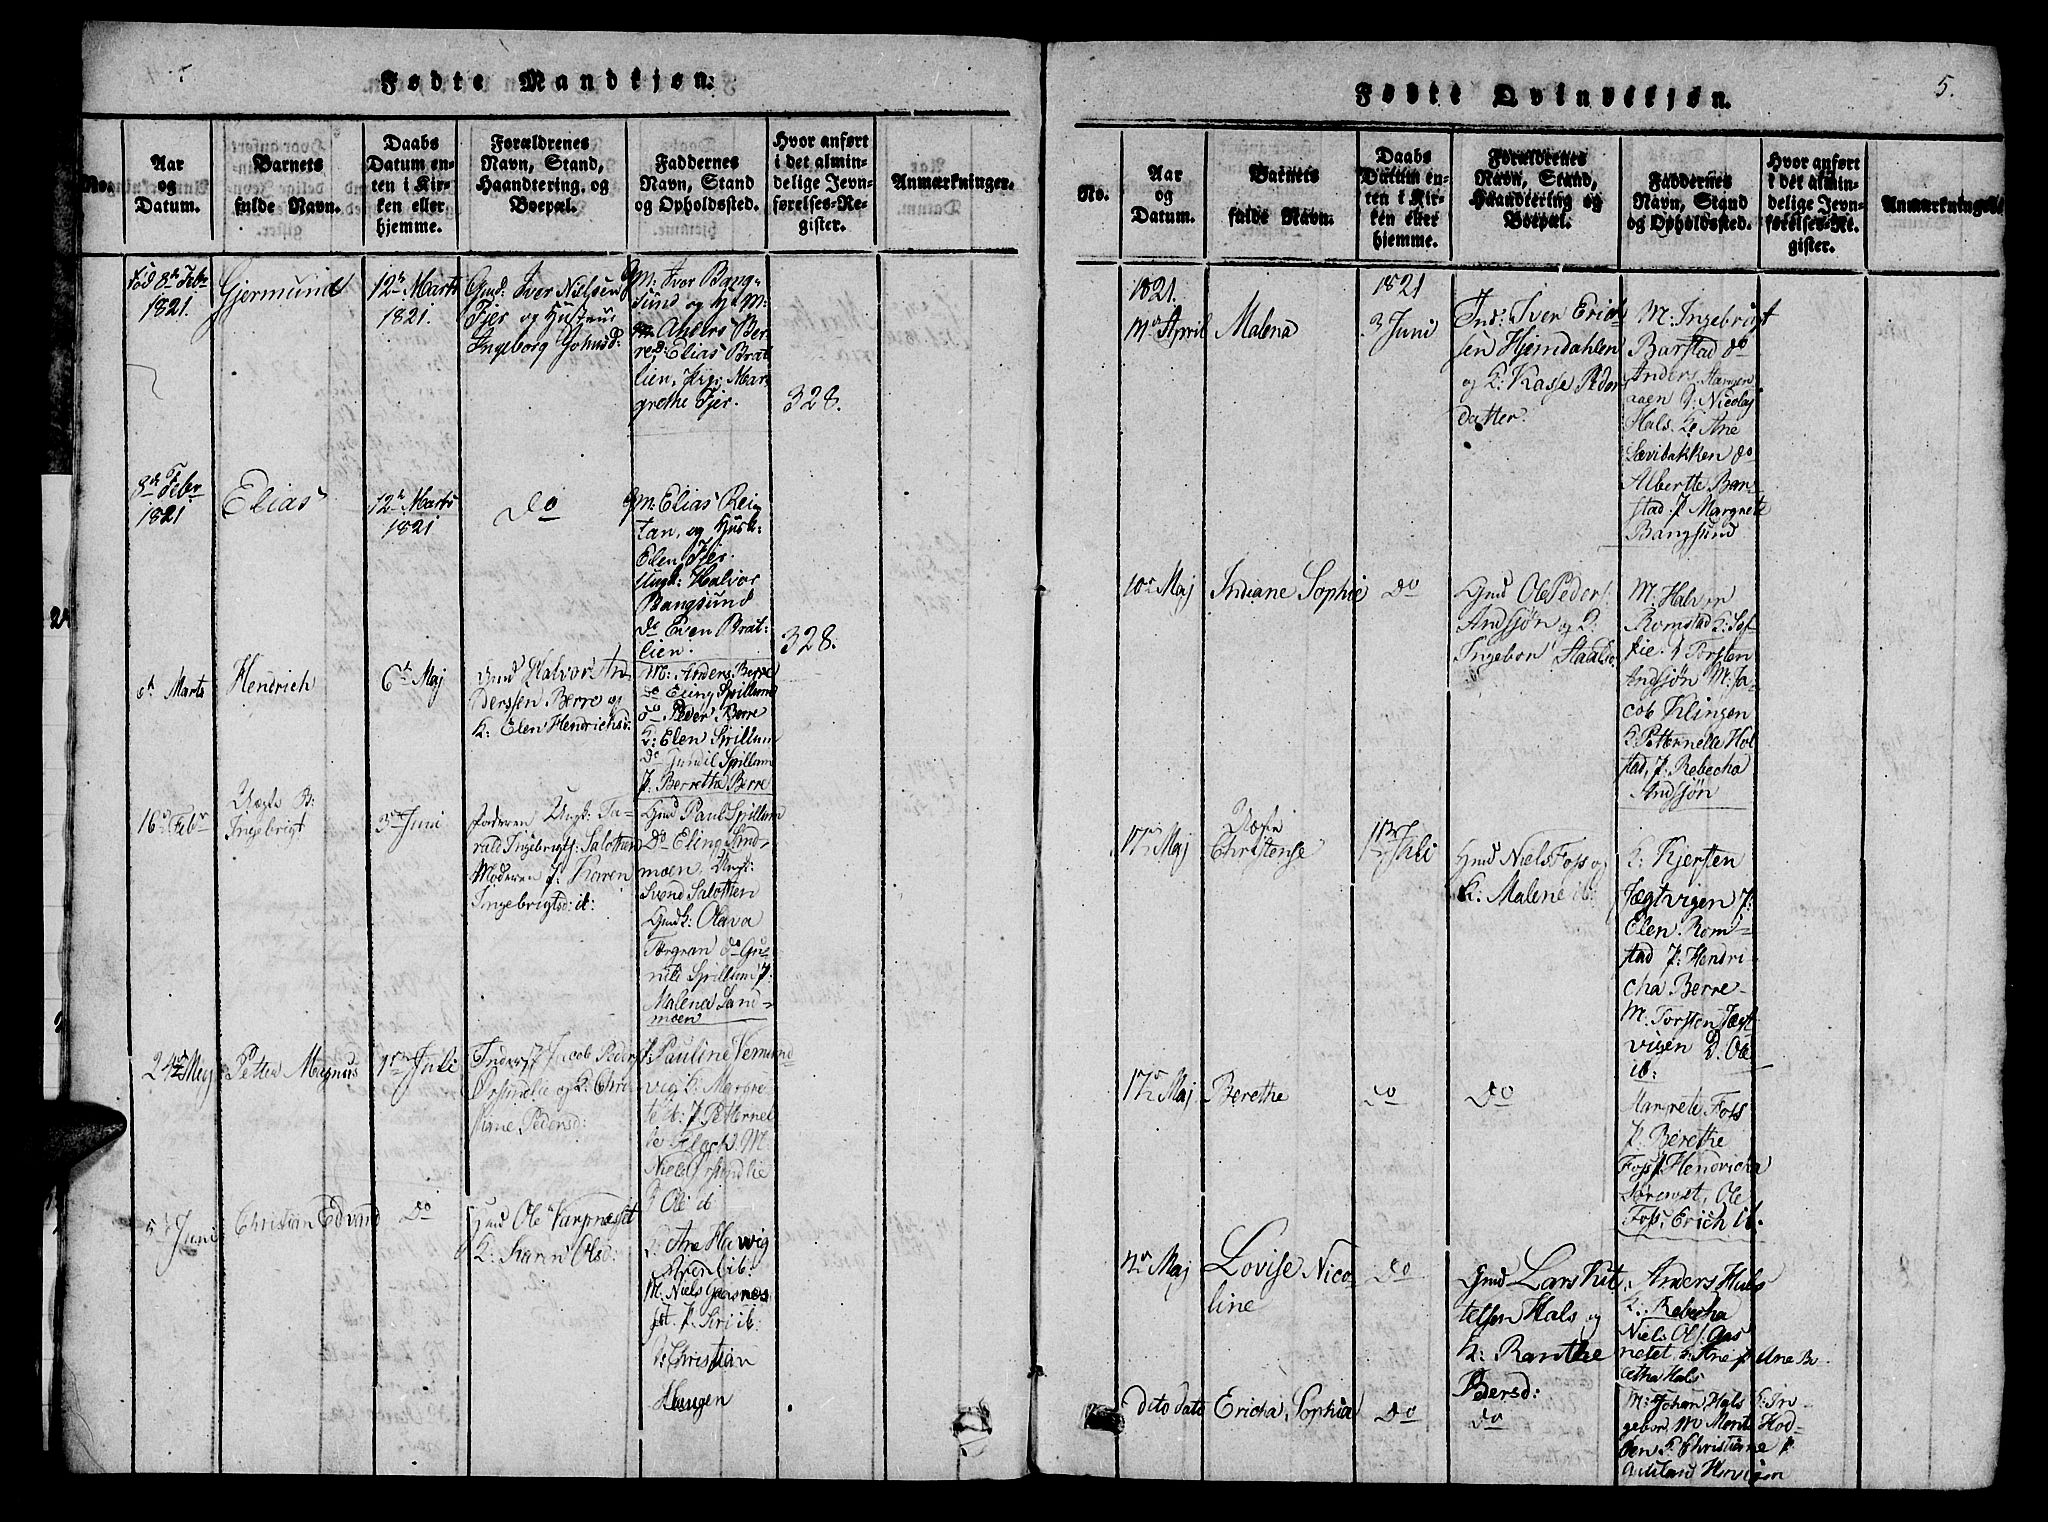 Fødte Mandkjøn.
No.
Aar
og
Datum.
Barnets
fulde Navn.
Daabs
Datum en-
ten i Kir-
ken eller
hjemme.
Forældrenes
Navn, Stand,
Haandtering, og
Boepæl.
Faddernes
Navn, Stand
og Opholdssted.
Hvor anført
i det almin-
delige Jevn-
førelses-Re-
gister.
Anmærkninger.
Fød 8de Febr
1821.
Gjermund
12te Marts
1821.
Gmd: Iver Nielsen
Fjer og Hustrue
Ingeborg
Gm: Ivor Bang-
sund og
Anders Ber-
re, Elias Brat
lien, Pig: Mar
grethe Fjer.
328.
8de Febr
1821
Elias
12te Marts
1821
do
Gm: Elias Rei-
tan, og Husk:
Elen Fjer.
Ungk: Halvor
Bangsund
do Even Brat-
lien.
328.
Marts
Hendrich
6te Maj
Gmd Halvor An
derssen Berre og
K: Elen Hendrichsd:
M: Anders Berre
do Eling Spillum
do Peder Berre
K: Elen Spillum
do Gunil Spillum
P: Berretha Berre
16de Febr
Uægte B:
Ingebrigt
3de Juni
Faderen Ungk: Ta-
rald Ingebrigts: Salotten
Moderen P: Karen
Ingebrigtsd: ib:
Gmd Paul Spillum
Do Eling Sand-
moen, Ungk:
Svend Salotten
Gmdk: Olava
Torgran do Gu-
nild Spillum P.
Malena Sand-
moen
24de Maj
Petter Magnus
1ste Juli
Inderst Jacob Peders
og K: Chri-
stine Pedersd:
P: Pauline Vemund
vig K: Margre-
te ib: P Petternel
le M
Niels
D Ole ib
5te Juni
Christian Edvard
Do
Gmd Ole Varpnesset
K: Karen Olsd:
K: Ane Havig
ib:
M: Niels Gaasnes
P. Siri ib:
D: Christian
Haugen
Fødte Qvindekjøn.
5.
No.
Aar
og
Datum.
Barnets
fulde Navn.
Daabs
Datum en-
ten i Kir-
ken eller
hjemme.
Forældrenes
Navn, Stand,
Haandtering og
Boepæl.
Faddernes
Navn, Stand
og Opholdssted.
Hvor anført
i det almin-
delige Jevn-
førelses-Re-
gister.
Anmærkninger.
1821.
April
Malena
1821
3 Juni
Ind: Iver Erich-
sen Hjemdahlen
og K: Kasje Peder
datter.
M: Ingebrigt
Barstad do
Anders Stangen
aaen D: Nicolaj
Hals. K: Ane
Sævibakken do
Albertte Bar-
stad P Margrete
Bangsund
10de Maj
Indiane Sophie
Do
Gmd Ole Peders:
Andsjøn og K:
Ingebor
M: Halvor
Romstad K: Sof-
fie. D Torsten
Andsjøn M: Ja-
cob Klingen
K Petternelle Hol
stad, P: Rebecha
Andsjøn
17de Maj
Christense
1ste Juli
Gmd Niels Foss og
K: Malene ib:
K: Kjersten
Jægtvigen P:
Elen Rom-
stad P: Hendri-
cha Berre-
M. Torsten Jægt
vigen D: Ole
ib:
17de Maj
Berethe
do
Do
Margrete Foss
P. Berethe
Foss P. Hendricka
Ole
Foss, Erich ib.
Maj
Lovise Nico-
line
do
Gmd Lars Kit
telsen Hals og
K: Ranthe
Pedersd:
Anders Hals
K: Rebecha
Niels Ols: Gas
nesset K: Ane P Ane B
cetha Hals
dito dato
Ericha Sophia
Do
do
M: Johan Hals K: In-
gebor
K: Christiane P